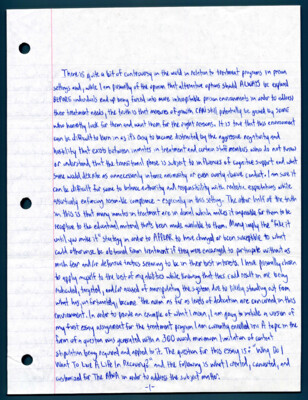 There is quite a bit of controversy in the world in relation to treatment programs in prison
settings and, while I am personally of the opinion that alternative options should ALWAYS be explored
BEFORE individuals end up being forced into more inhospitable prison environments in order to address
their treatment needs, the truth is that measures of growth CAN still potentially be gained by some
who honestly look for them and want them for the right reasons. It is sad that this environment
can be difficult to learn in as it's easy to become distracted by the aggressive negativity and
hostility that exists between inmates in treatment and certain staff members who do not know
or understand, that the transitional phase is subject to influences of cognitive support and what
some would describe as unnecessarily inhumane or even overly abusive conduct. I am sure it
can be difficult for some to balance authority and responsibility with realistic expectations while
enforcing reasonable compliance - especially in this setting. The other half of the truth
in this is that many inmates in treatment are in denial which makes it impossible for them to be
receptive to the educational material that's been made available to them. Many imply the "fake it
until you make it" strategy in order to APPEAR to have changed or been receptive to what
could otherwise be obtained from treatment if they were encouraged to participate without as
much fear and/or deterred tactics seeming to be in their best interests. I have personally chosen
to apply myself to the best of my abilities while knowing that this could result in me being
ridiculed, targeted, and/or accused of manipulating the system due to visibly standing out from
what has, unfortunately, become "the norm" as far as levels of dedication are concerned in this
environment. In order to provide an example of what I mean, I am going to include a version of
my first essay assignment for the treatment program I am currently enrolled in: A topic in the
form of a question was generated with a 300 word minimum limitation of content
stipulation being required and applied to it. The question for this essay is: "Why Do I
Want To Live A Life In Recovery?" and the following is what I created, converted, and
customized for The APWA in order to address the subject matter.
-1-